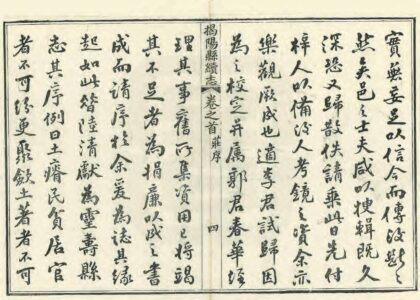 實無妄足以信今而傳後歟之
然矣邑之士夫咸以搜輯既久
深恐又歸散佚請乘此日先付
梓人以備後人考鏡之資余亦
樂觀厥成也適李君試歸因
為之校定并屬郭君春華經
揭陽縣續志
卷之首 莊序
四
理其事舊所集資用已將竭
其不足者為捐廉以成之書
成而請序於余爰為誌其緣
起如此昔陸清獻為靈壽縣
志其序例曰土瘠民貧居官
者不可紛更聚斂土著者不可